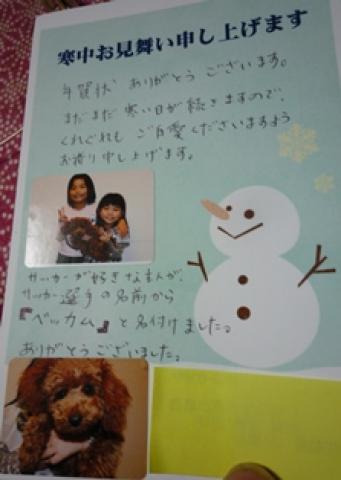 寒中お見舞い申し上げます
年賀状 ありがとう ございます。
まだまだ 寒い日が 続きますので、
くれぐれも ご自愛くださいますよう
お祈り申し上げます。
サッカーが好きな主人が、
サッカー選手の名前から
『ベッカム』と名付けました。
ありがとうございました。